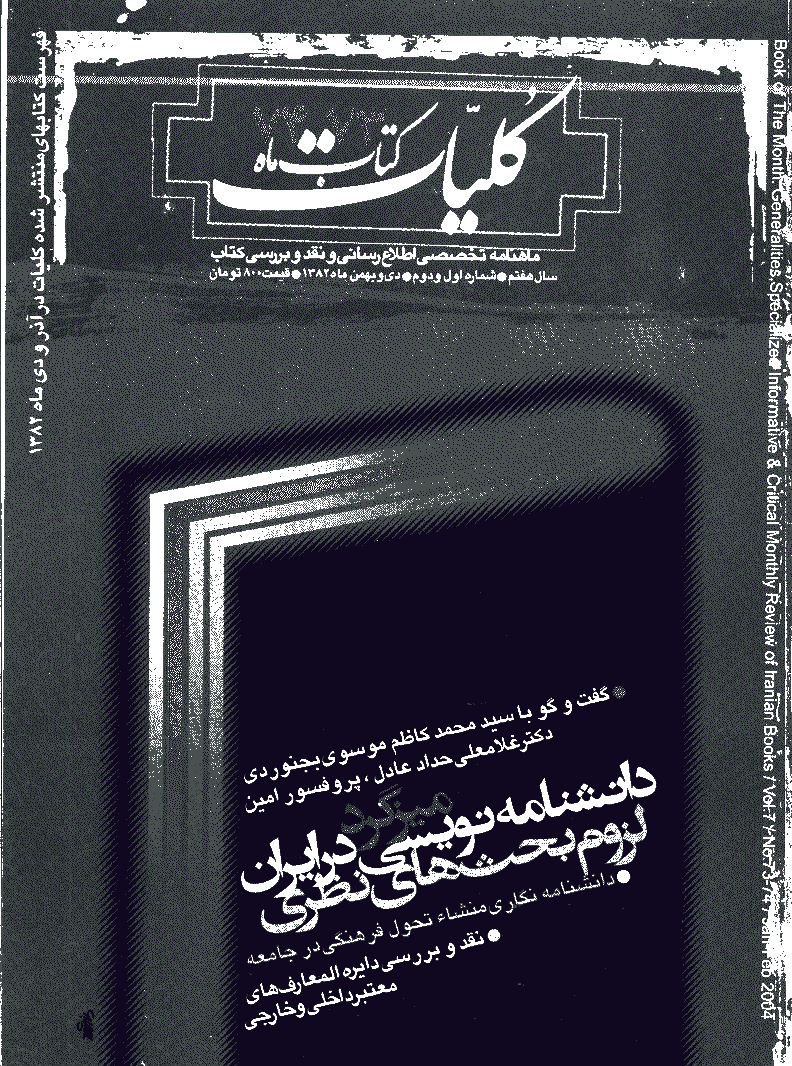 ۷۴-۷۳
کتاب ماه
کلیّات
ماهنامه تخصصی اطلاع رسانی و نقد و بررسی کتاب
سال هفتم ● شماره اول و دوم ● دی و بهمن ماه ۱۳۸۲ ● قیمت ۸۰۰ تومان
فهرست کتابهای منتشر شده کلیات در آذر و دی ماه ۱۳۸۲
Book of The Month Generalities,Specialized Informative & Critical Monthly Review of Iranian Books / Vol.7 / No.73-74 / Jan-Feb 2004
● گفت و گو با سید محمد کاظم موسوی بجنوردی
دکتر غلامعلی حداد عادل ، پروفسور امین
میزگرد
دانشنامه نویسی در ایران
لزوم بحث‌های نظری
● دانشنامه نگاری منشاء تحول فرهنگی در جامعه
● نقد و بررسی دایره المعارف‌های
معتبر داخلی و خارجی